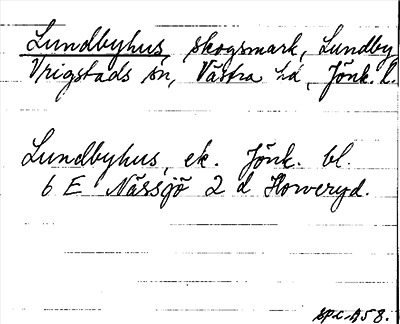 Lundbyhus, skogsmark, Lundby
Vrigstads sn, Västra hd, Jönk. l.
Lundbyhus, ek. Jönk. bl.
6 E Nässjö 2 d Horveryd.